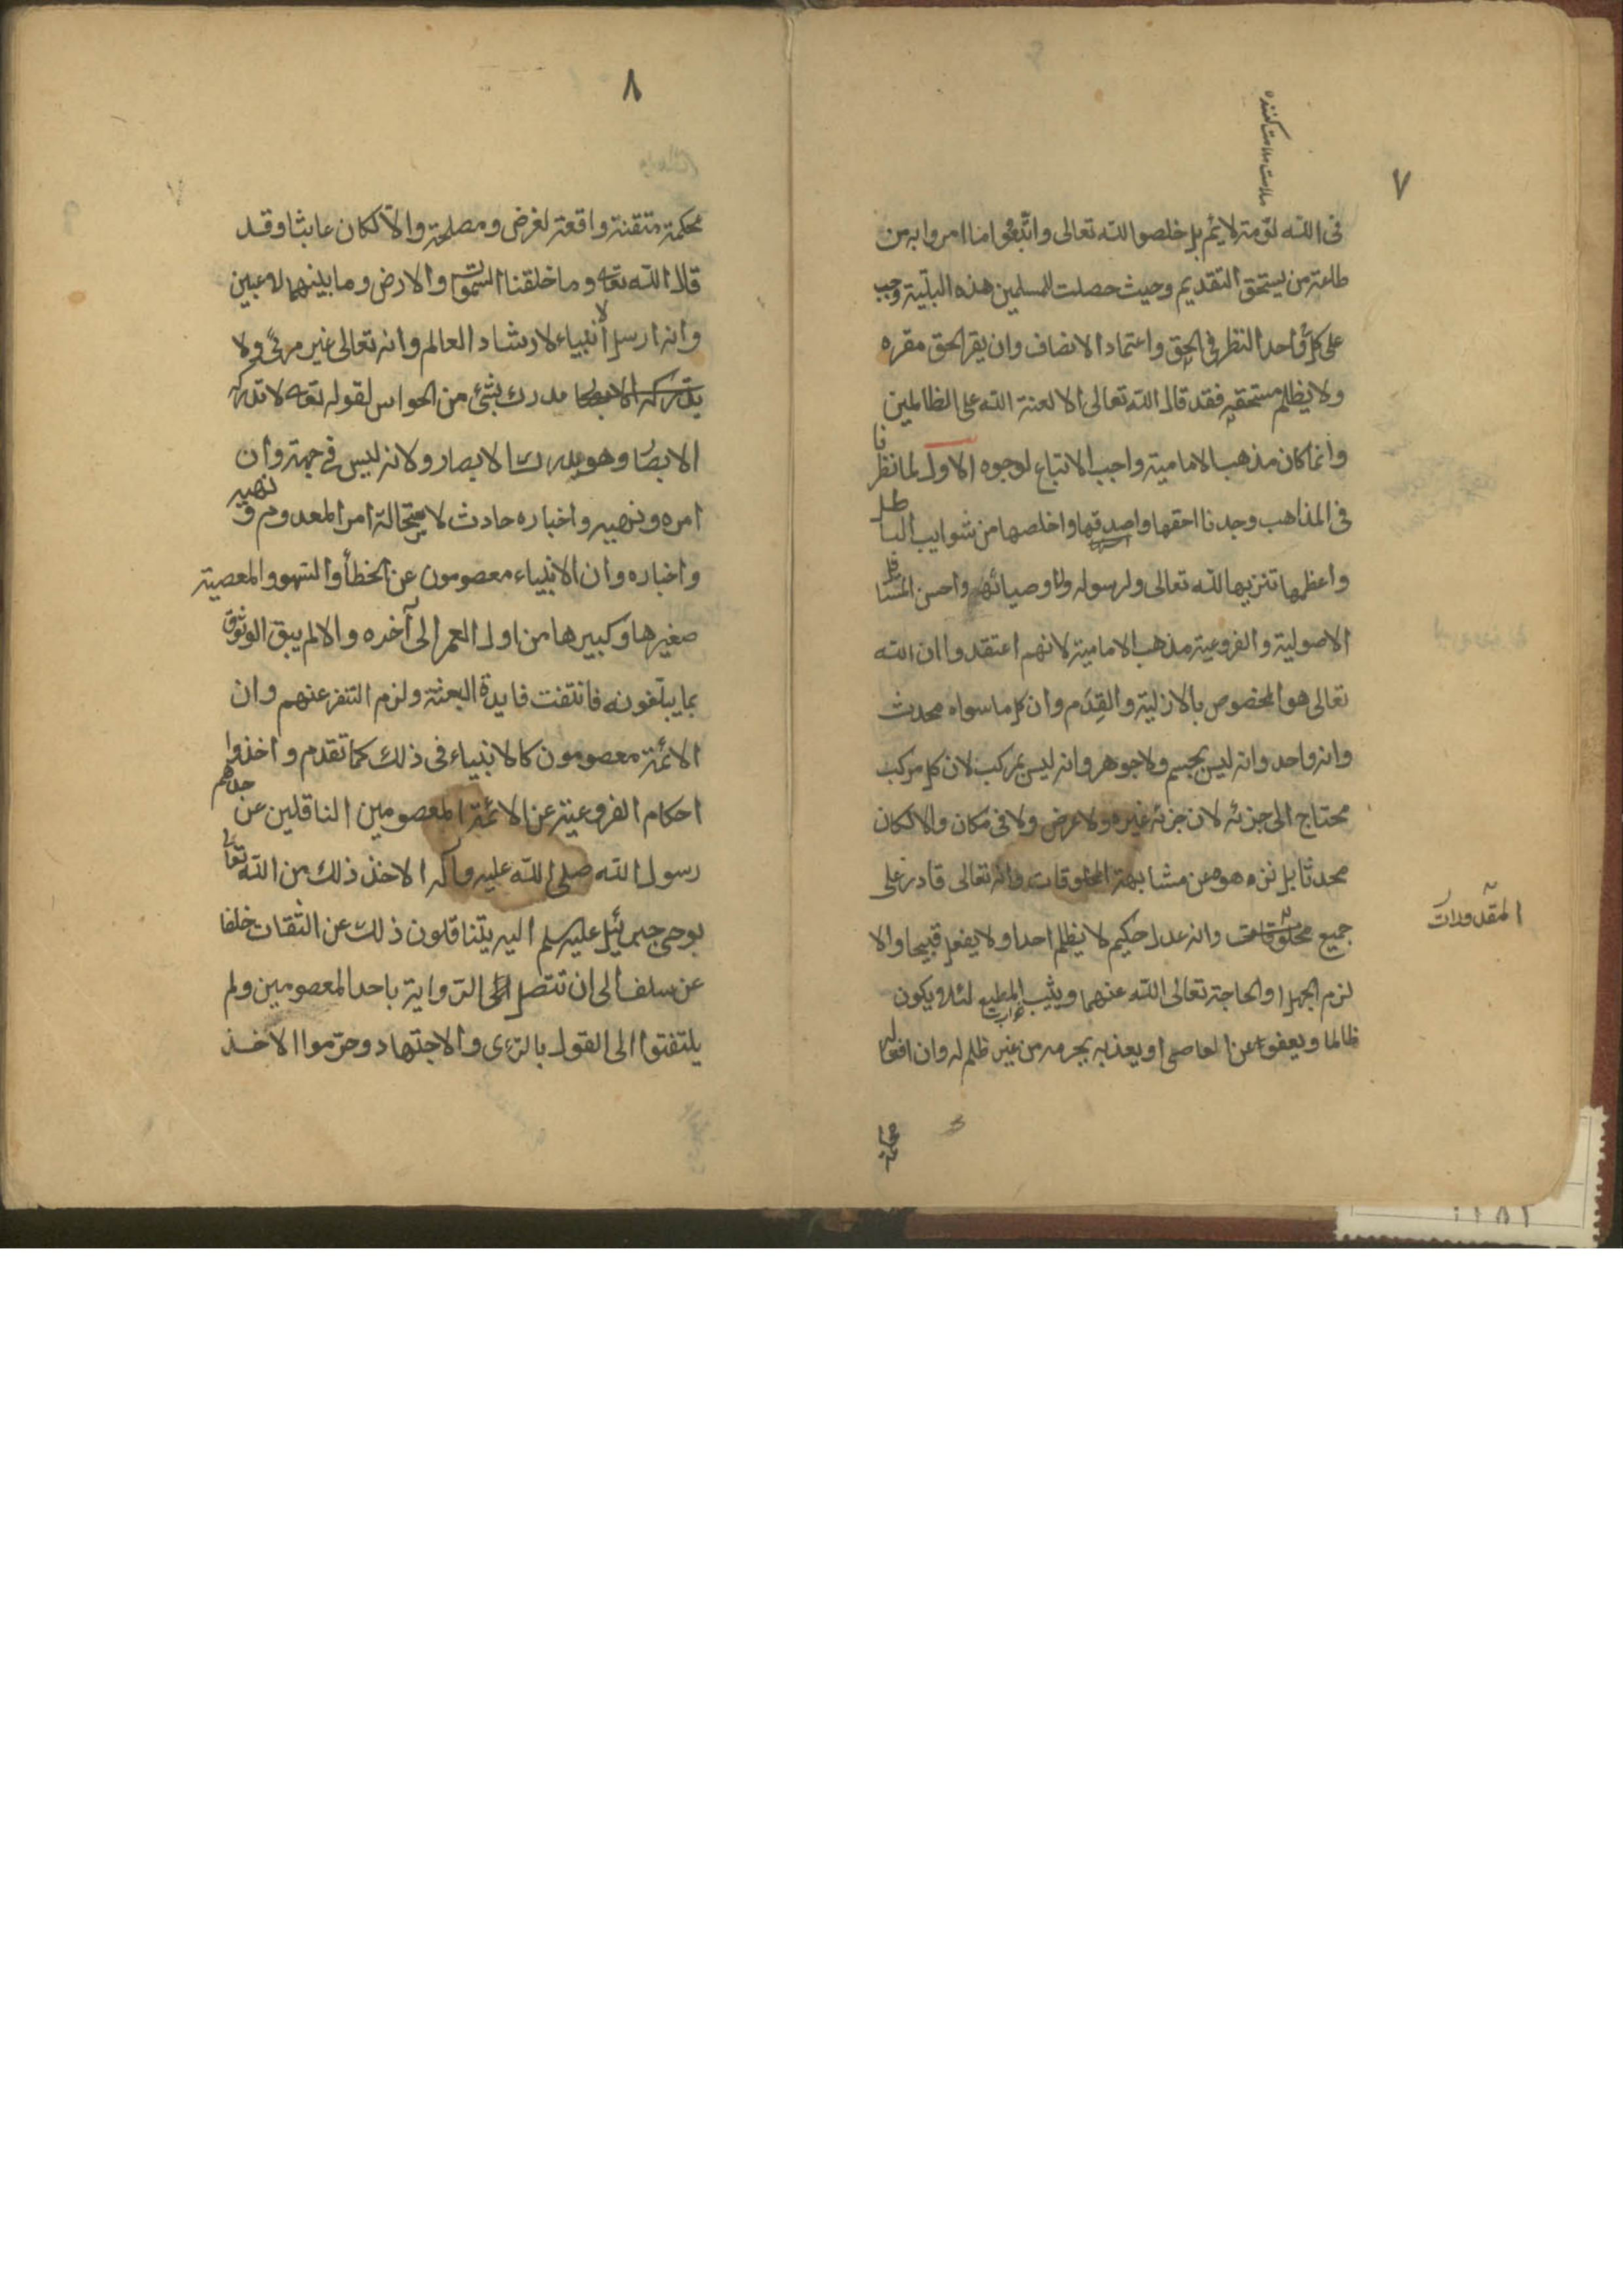 ٧
ملامت ملامت كننده
فى الله لومة لايم بل خلصوا لله تعالى واتبعوا ما امروا به من
طاعة من يستحق التقديم وحيث حصلت للمسلمين هذه البلية وجب
على كل واحد النظر فى الحق واعتماد الانصاف وان يقر الحق مقره
ولا يظلم مستحقه فقد قال الله تعالى الا لعنة الله على الظالمين
وانما كان مذهب الامامية واجب الاتباع لوجوه الاول لما نظرنا
فى المذاهب وجدنا احقها واصدقها واخلصها من شوايب الباطل
واعظمها تنزيها لله تعالى ولرسوله ولاوصيائه واحسن المسائل
الاصولية والفروعية مذهب الامامية لانهم اعتقدوا ان الله
تعالى هو المخصوص بالازلية والقِدَم وان كل ما سواه محدث
وانه واحد وانه ليس بجسم ولا جوهر وانه ليس بمركب لان كل مركب
محتاج الى جزئه لان جزئه غيره ولا عرض ولا فى مكان والا لكان
محدثا بل نزهوه عن مشابهة المخلوقات وانه تعالى قادر على
جميع مخلوقات وانه عدل حكيم لا يظلم احدا ولا يفعل قبيحا والا
المقدورات
لزم الجهل او الحاجة تعالى الله عنهما ويثيب المطيع لئلا يكون
ظالما ويعفو عن العاصى او يعذبه بجرمه من غير ظلم له وان افعاله
محكمة
٨
محكمة متقنة واقعة لغرض ومصلحة والا لكان عابثا وقد
قال الله تعه وما خلقنا السموات والارض وما بينهما لاعبين
وانه ارسل الانبياء لارشاد العالم وانه تعالى غير مرئى ولا
مدرك بشئ من الحواس لقوله تعه لا تدركه
الابصار وهو يدرك الابصار ولانه ليس فى جهة وان
امره ونهيه واخباره حادث لاستحالة امر المعدوم و نهيه
واخباره وان الانبياء معصومون عن الخطأ والسهو والمعصية
صغيرها وكبيرها من اول العمر الى آخره والا لم يبق الوثوق
بما يبلغونه فانتفت فايدة البعثة ولزم التنفر عنهم وان
الائمة معصومون كالانبياء فى ذلك كما تقدم واخذوا
احكام الفروعية عن الائمة المعصومين الناقلين عن جدهم
رسول الله صلى الله عليه وآله الاخذ ذلك من الله تعالى
بوحى جبرئيل عليه سلم اليه يتناقلون ذلك عن الثقات خلفا
عن سلف الى ان تتصل الرواية باحد المعصومين ولم
يلتفتوا الى القول بالرءى والاجتهاد وحرموا الاخذ